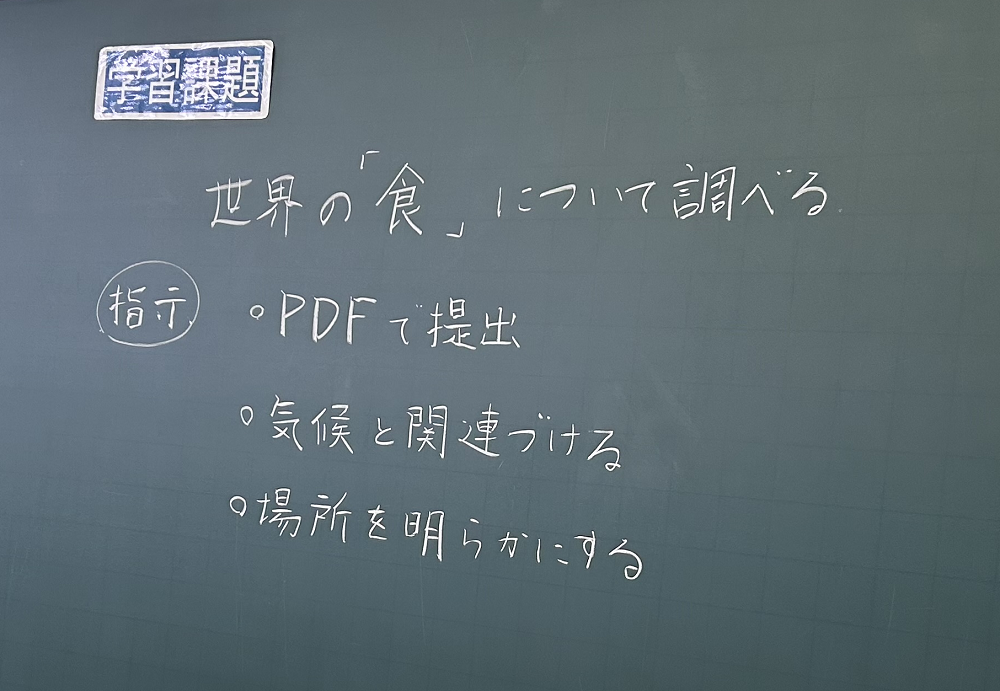 学習課題
世界の「食」について調べる
指示 ○PDFで提出
○気候と関連づける
○場所を明らかにする